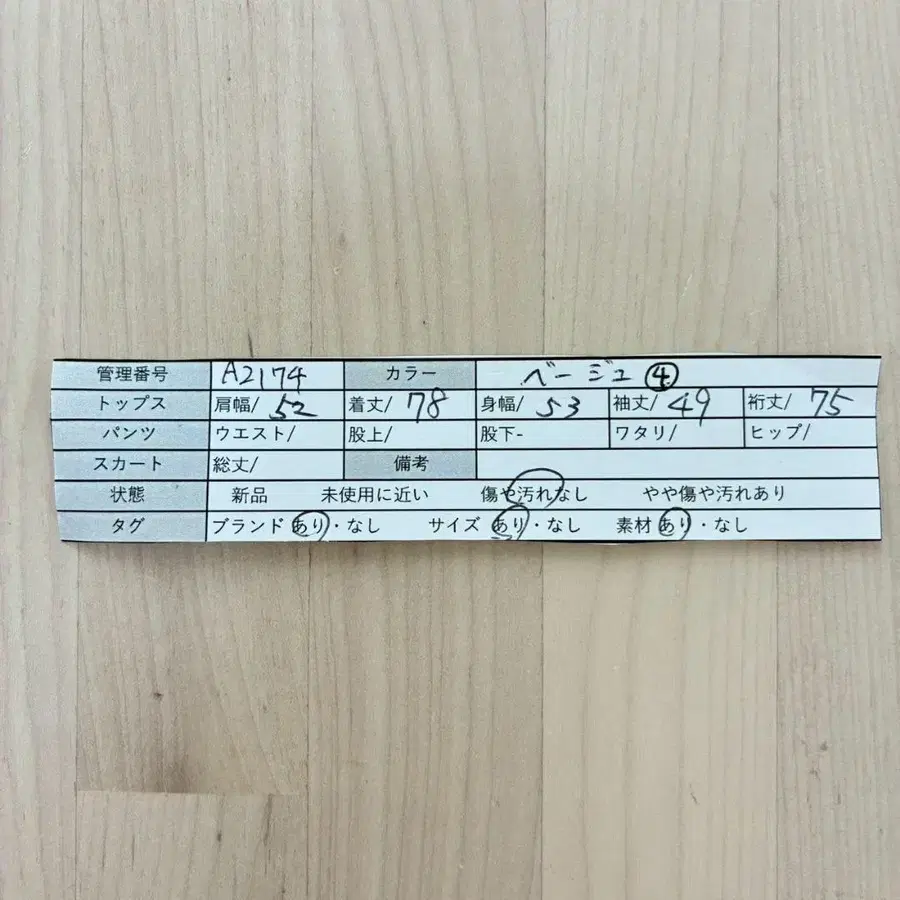 管理番号 A2174 カラー ベージュ ④
トップス 肩幅/ 52 着丈/ 78 身幅/ 53 袖丈/ 49 裄丈/ 75
パンツ ウエスト/ 股上/ 股下- ワタリ/ ヒップ/
スカート 総丈/ 備考
状態 新品 未使用に近い 傷や汚れなし やや傷や汚れあり
タグ ブランド あり・なし サイズ あり・なし 素材 あり・なし